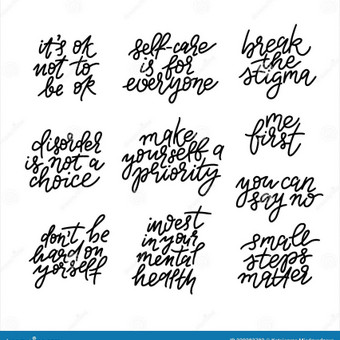 it's ok
not to
be ok
self-care
is for
everyone
break
the
stigma
disorder
is not a
choice
make
yourself a
priority
me
first
you can
say no
don't be
hard on
yourself
invest
in your
mental
health
small
steps
matter